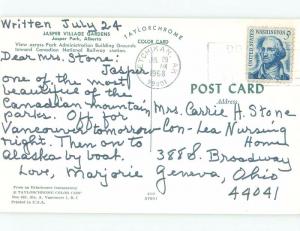 Written July 24
JASPER VILLAGE GARDENS
Jasper Park, Alberta
View across Park Administration Building Grounds
toward Canadian National Railway station.
TAYLORCHROME
COLOR CARD
KETCHIKAN, AK
JUL 29
1968
Dear Mrs. Stone:
Jasper
one of the most
beautiful of the
Canadian mountain
parks. Off for
Vancouver tomorrow
night. Then on to
Alaska by boat.
Love, Marjorie
POST CARD
Address
Mrs. Carrie H. Stone
Con-Lea Nursing
Home
388 S. Broadway
Geneva, Ohio
44041
From an Ektachrome transparency
Printed in U.S.A.